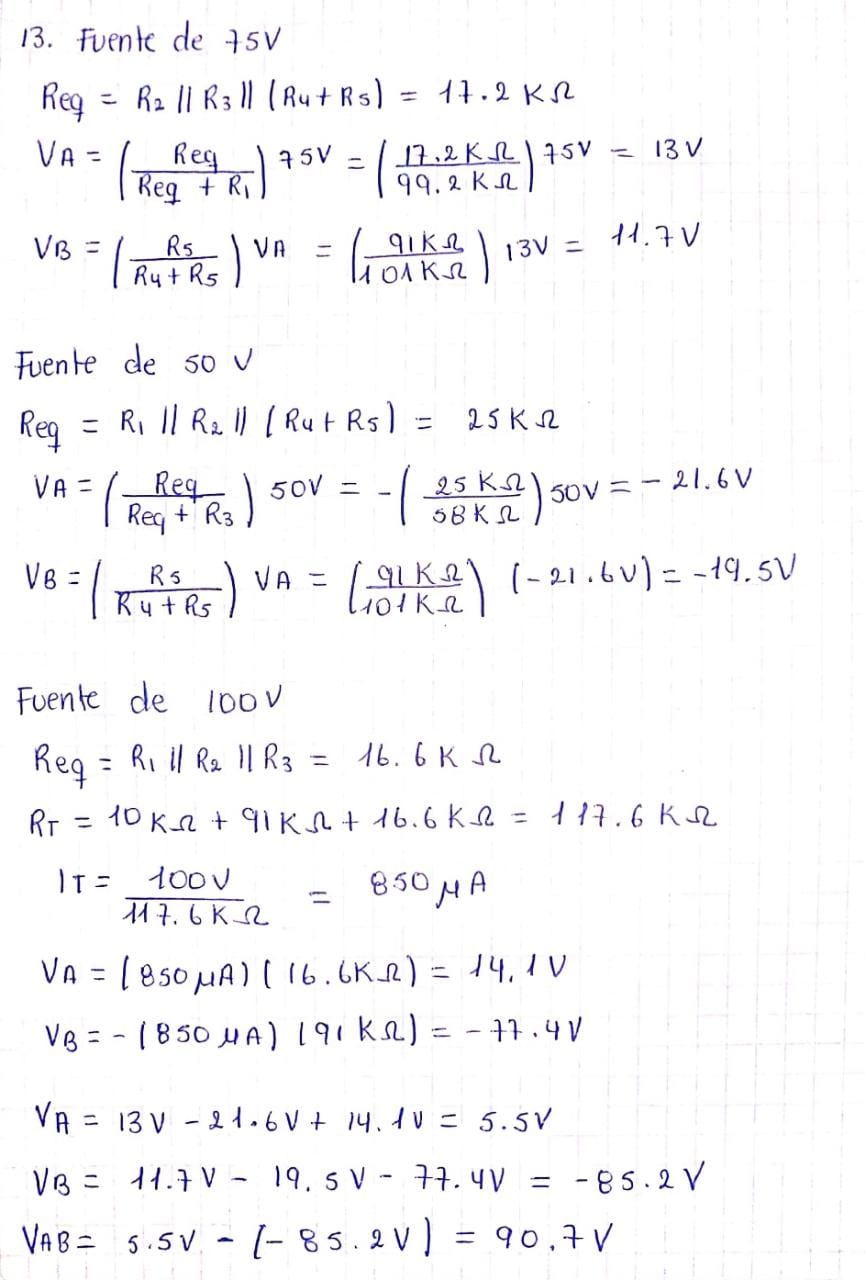 13. Fuente de 75V
Req = R2 || R3 || (R4 + R5) = 17.2 KΩ
VA = (Req / Req + R1) 75V = (17.2 KΩ / 99.2 KΩ) 75V = 13V
VB = (R5 / R4 + R5) VA = (91 KΩ / 101 KΩ) 13V = 11.7V
Fuente de 50 V
Req = R1 || R2 || (R4 + R5) = 25 KΩ
VA = (Req / Req + R3) 50V = -(25 KΩ / 58 KΩ) 50V = - 21.6V
VB = (R5 / R4 + R5) VA = (91 KΩ / 101 KΩ) (-21.6V) = -19.5V
Fuente de 100V
Req = R1 || R2 || R3 = 16.6 K Ω
RT = 10 KΩ + 91 KΩ + 16.6 KΩ = 117.6 KΩ
IT = 100V / 117.6 KΩ = 850 μA
VA = (850 μA) (16.6KΩ) = 14.1V
VB = - (850 μA) (91 KΩ) = -77.4V
VA = 13V - 21.6V + 14.1V = 5.5V
VB = 11.7V - 19.5V - 77.4V = -85.2V
VAB = 5.5V - (-85.2V) = 90.7V